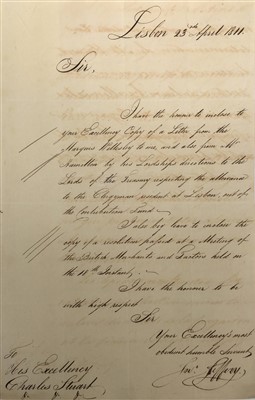 Lisbon 23rd April 1811.
Sir,
I have the honour to inclose to
your Excellency Copy of a Letter from the
Marquis Wellesley to me, and also from Mr
Hamilton by his Lordships directions to the
Lords of the Treasury respecting the allowance
to the Clergyman resident at Lisbon, out of
the Contribution Fund.
I also beg leave to inclose the
copy of a resolution passed at a Meeting of
the British Merchants and Factors held on
the 11th Instant.
I have the honour to be
with high respect
Sir
Your Excellency's most
obedient humble Servant
Jno. Jeffery
To
His Excellency
Charles Stuart